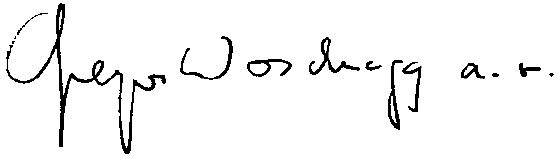 Gregor Woschnagg a. r.